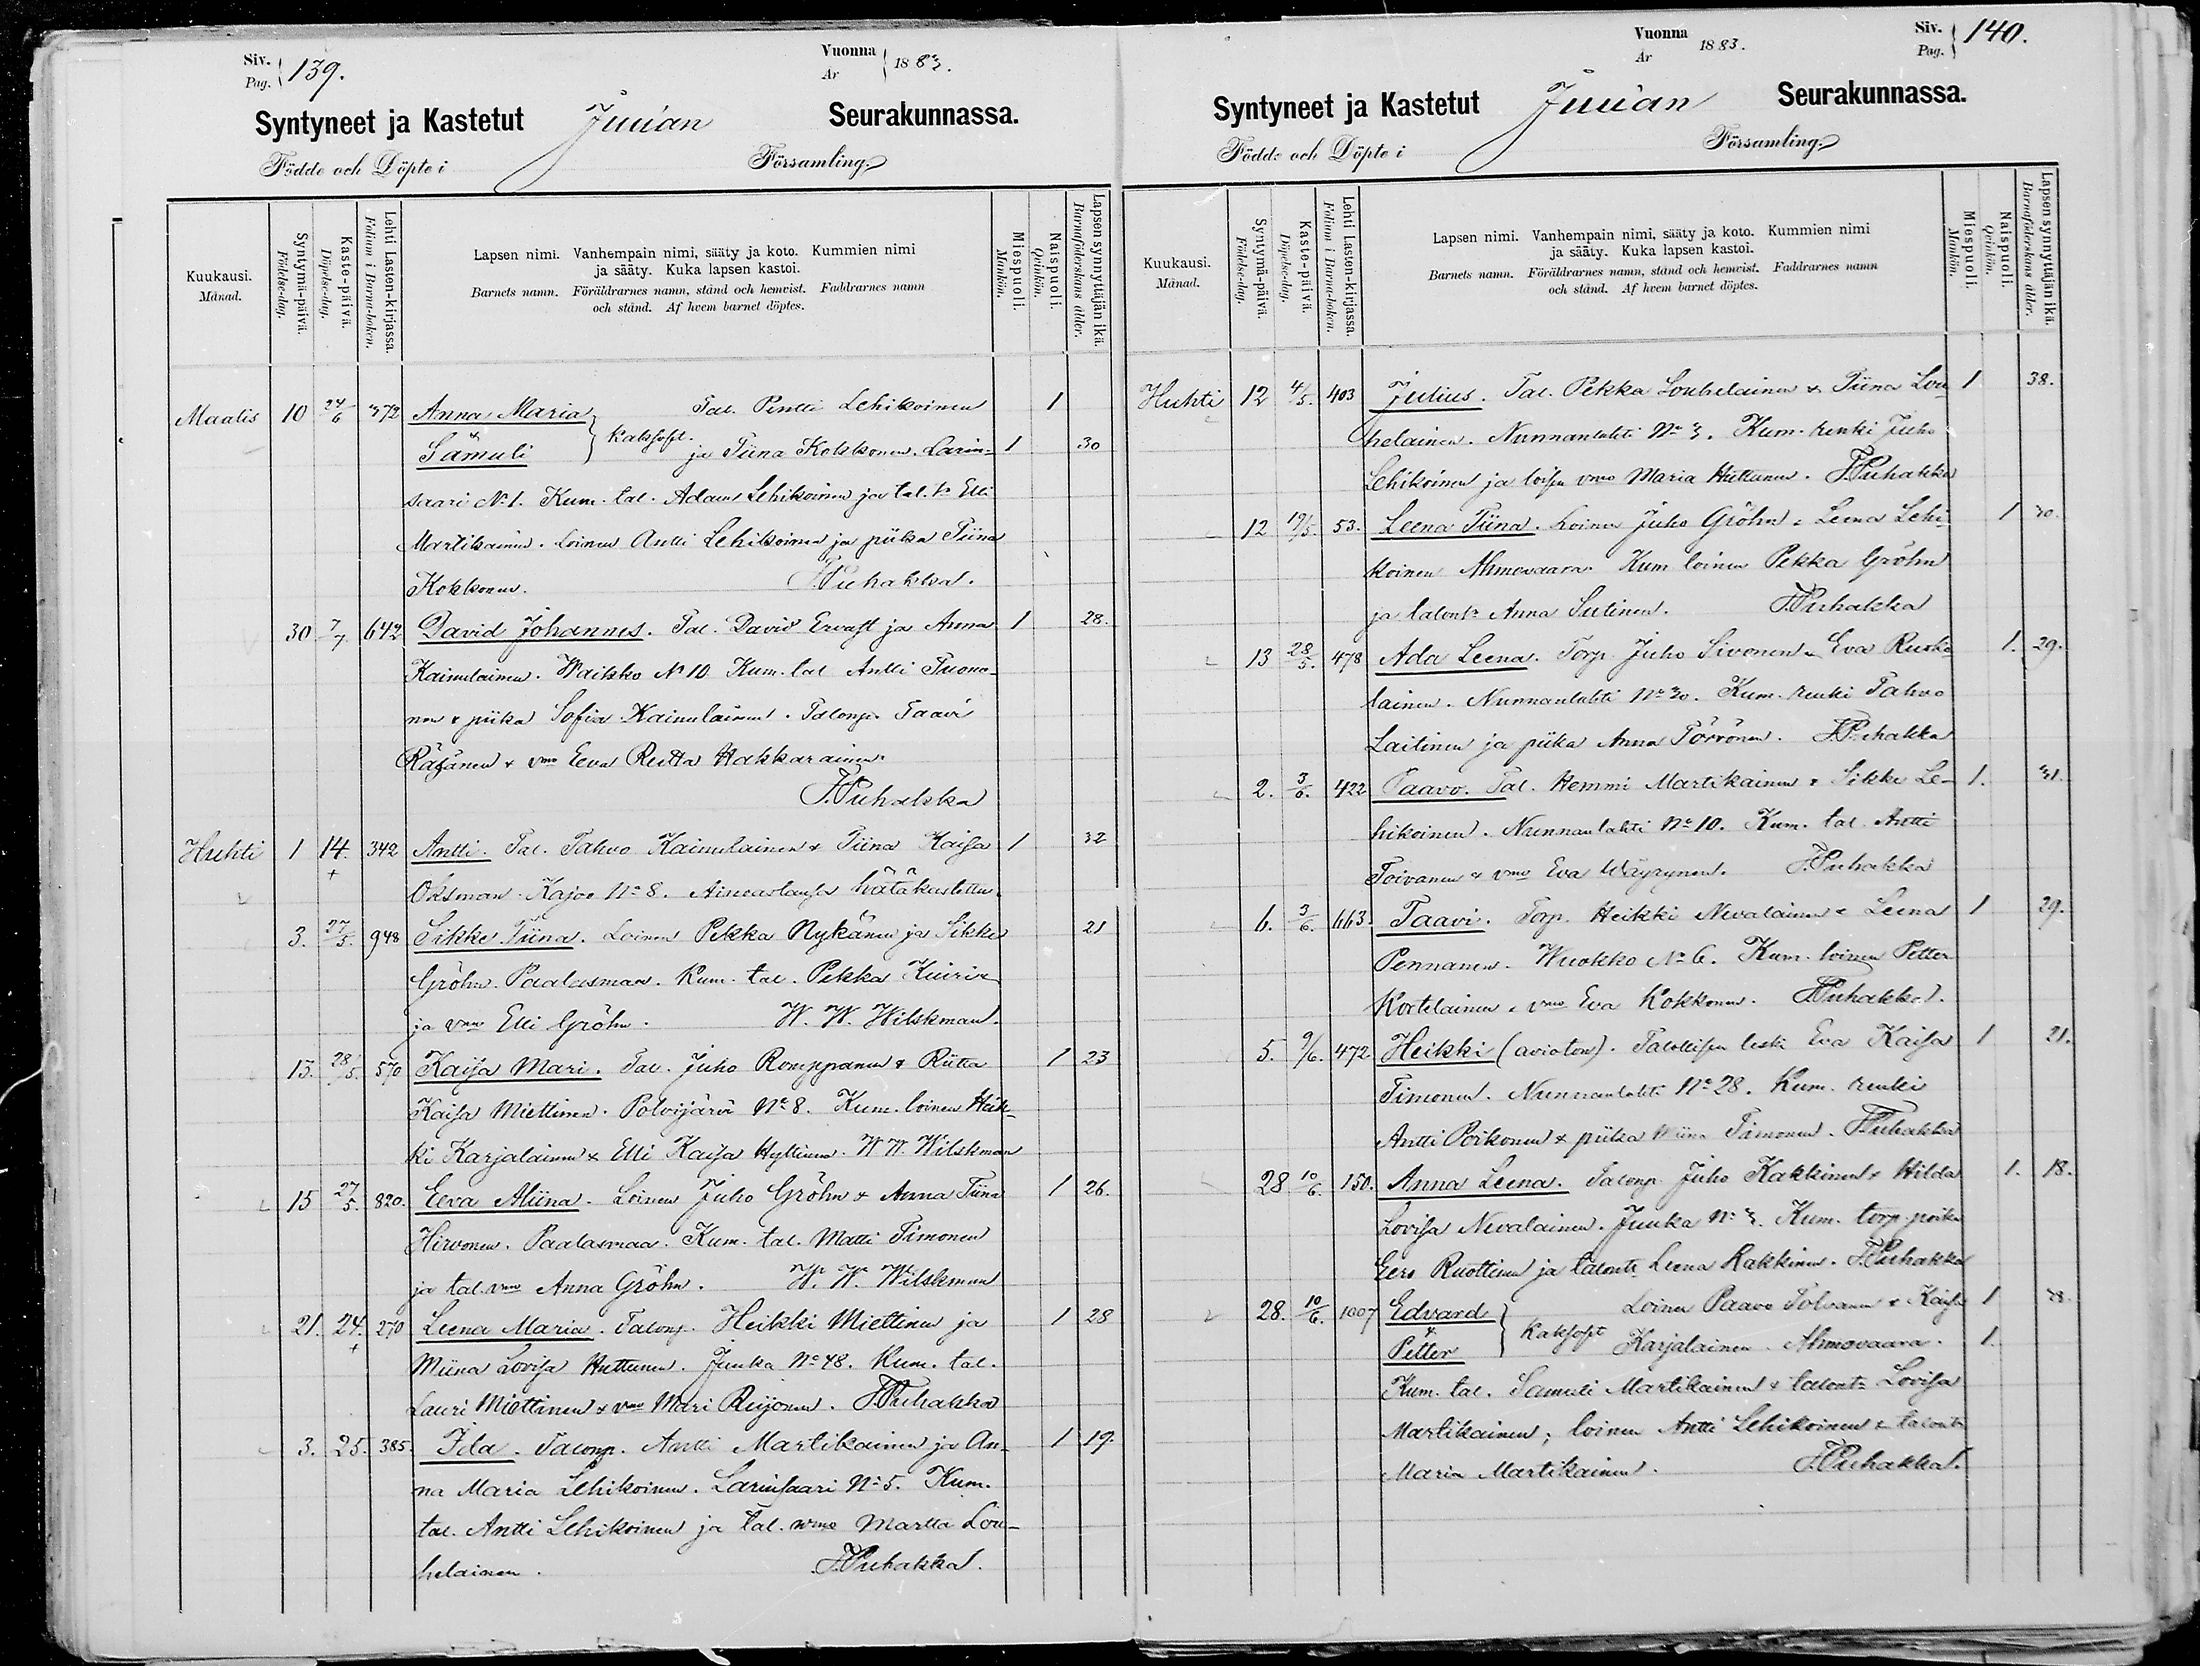 Siv.
Pag. 139.
Vuonna
Ar 1883.
Syntyneet ja Kastetut Juuan Seurakunnassa.
Födde och Döpte i Församling.
Kuukausi.
Månad.
Syntymä-päivä.
Födelse-dag.
Kaste-päivä.
Döpelse-dag.
Lehti Lasten-kirjassa.
Folium i Barna-boken.
Lapsen nimi. Vanhempain nimi, sääty ja koto. Kummien nimi
ja sääty. Kuka lapsen kastoi.
Barnets namn. Föräldrarnes namn, stånd och hemvist. Faddrarnes namn
och stånd. Af hvem barnet döptes.
Miespuoli.
Mankön.
Naispuoli.
Qvinkön.
Lapsen synnyttäjän ikä.
Barnaföderskans ålder.
Maalis 10 24/6 372 Anna Maria Tal. Pentti Lehikoinen 1
Sämuli kaksoset. ja Tiina Kokkonen. Larin- 1 30
saari No 1. Kum. tal. Adam Lehikoinen ja tal. tr Elli
Martikainen. loinen Antti Lehikoinen ja piika Tiina
Kokkonen. J. Puhakka.
30 7/7. 642 David Johannes. Tal. David Ervast ja Anna 1 28.
Kainulainen. Waikko No 10 Kum. tal Antti Tuono-
nen & piika Sofia Kainulainen. Talonp. Taavi
Räsänen & vmo Eeva Reitta Hakkarainen.
J. Puhakka
Huhti 1 14. 342 Antti. Tal. Tahvo Kainulainen & Tiina Kaisa 1 32
+
Oksman. Kajoo No 8. hätäkastettu.
3. 27/5. 948 Sikke Tiina. Loinen Pekka Nykänen ja Sikke 21
Gröhn. Paalasmaa. Kum. tal. Pekka Kuiri
ja vmo Elli Gröhn. W. W. Wilskman.
13. 28/5. 570 Kaisa Mari. Tal. Juho Romppanen & Riitta 1 23
Kaisa Miettinen. Polvijärvi No 8. Kum. loinen Heik-
ki Karjalainen & Elli Kaisa Hyttinen. W W. Wilskman
15 27/5. 820. Eeva Miina. Loinen Juho Gröhn & Anna Tiina 1 26.
Hirvonen. Paalasmaa. Kum. tal. Matti Timonen
ja tal. vmo Anna Gröhn. W. W. Wilskman
21. 24. 270 Leena Maria. Talonp. Heikki Miettinen ja 1 28
+
Miina Lovisa Huttunen. Juuka No 48. Kum. tal.
Lauri Miettinen & vmo Mari Reijonen. J. Puhakka
3. 25. 385. Ida. Talonp. Antti Martikainen ja An- 1 19.
na Maria Lehikoinen. Larinsaari No 5. Kum.
tal. Antti Lehikoinen ja tal. vmo Martta Lou-
helainen. J. Puhakka.
Vuonna
Ar 1883.
Siv.
Pag. 140.
Syntyneet ja Kastetut Juuan Seurakunnassa.
Födde och Döpte i Församling.
Kuukausi.
Månad.
Syntymä-päivä.
Födelse-dag.
Kaste-päivä.
Döpelse-dag.
Lehti Lasten-kirjassa.
Folium i Barna-boken.
Lapsen nimi. Vanhempain nimi, sääty ja koto. Kummien nimi
ja sääty. Kuka lapsen kastoi.
Barnets namn. Föräldrarnes namn, stånd och hemvist. Faddrarnes namn
och stånd. Af hvem barnet döptes.
Miespuoli.
Mankön.
Naispuoli.
Qvinkön.
Lapsen synnyttäjän ikä.
Barnaföderskans ålder.
Huhti 12 4/5. 403 Julius. Tal. Pekka Louhelainen & Tiina Lou- 1 38.
helainen. Nunnanlahti No 3. Kum. renki Juho
Lehikoinen ja loisen vmo Maria Huttunen. J. Puhakka
12 19/5. 53. Leena Tiina. Loinen Juho Gröhn & Leena Lehi- 1 30.
koinen Ahmovaara. Kum loinen Pekka Gröhn
ja talontr Anna Sutinen. J. Puhakka
13 28/5. 478 Ada Leena. Torp. Juho Sivonen & Eva Ruoko- 1. 29.
lainen. Nunnanlahti No 30. Kum. renki Tahvo
Laitinen ja piika Anna Törrönen. J. Puhakka
2. 3/6. 422 Paavo. Tal. Hemmi Martikainen & Sikke Le- 1. 31.
hikoinen. Nunnanlahti No 10. Kum. tal. Antti
Toivanen & vmo Eva Wäyrynen. J. Puhakka
6. 3/6. 663. Taavi. Torp. Heikki Nevalainen & Leena 1 29.
Pennanen. Wuokko No 6. Kum. loinen Petter
Kortelainen & vmo Eva Kokkonen. J. Puhakka.
5. 9/6. 472 Heikki (avioton). Talollisen leski Eva Kaisa 1 21.
Timonen. Nunnanlahti No 28. Kum. renki
Antti Poikonen & piika Miina Timonen. J. Puhakka
28 10/6. 150. Anna Leena. Talonp. Juho Kakkinen & Hilda 1. 18.
Lovisa Nevalainen. Juuka No 3. Kum. torp. poika
Eero Ruottinen ja talontr Leena Kakkinen. J. Puhakka
28. 10/6. 1007 Edvard Loinen Paavo Tolvanen & Kaisa 1
& Petter kaksoset Karjalainen. Ahmovaara. 1.
Kum. tal. Samuli Martikainen & talontr Lovisa
Martikainen; loinen Antti Lehikoinen & talontr
Maria Martikainen. J. Puhakka.